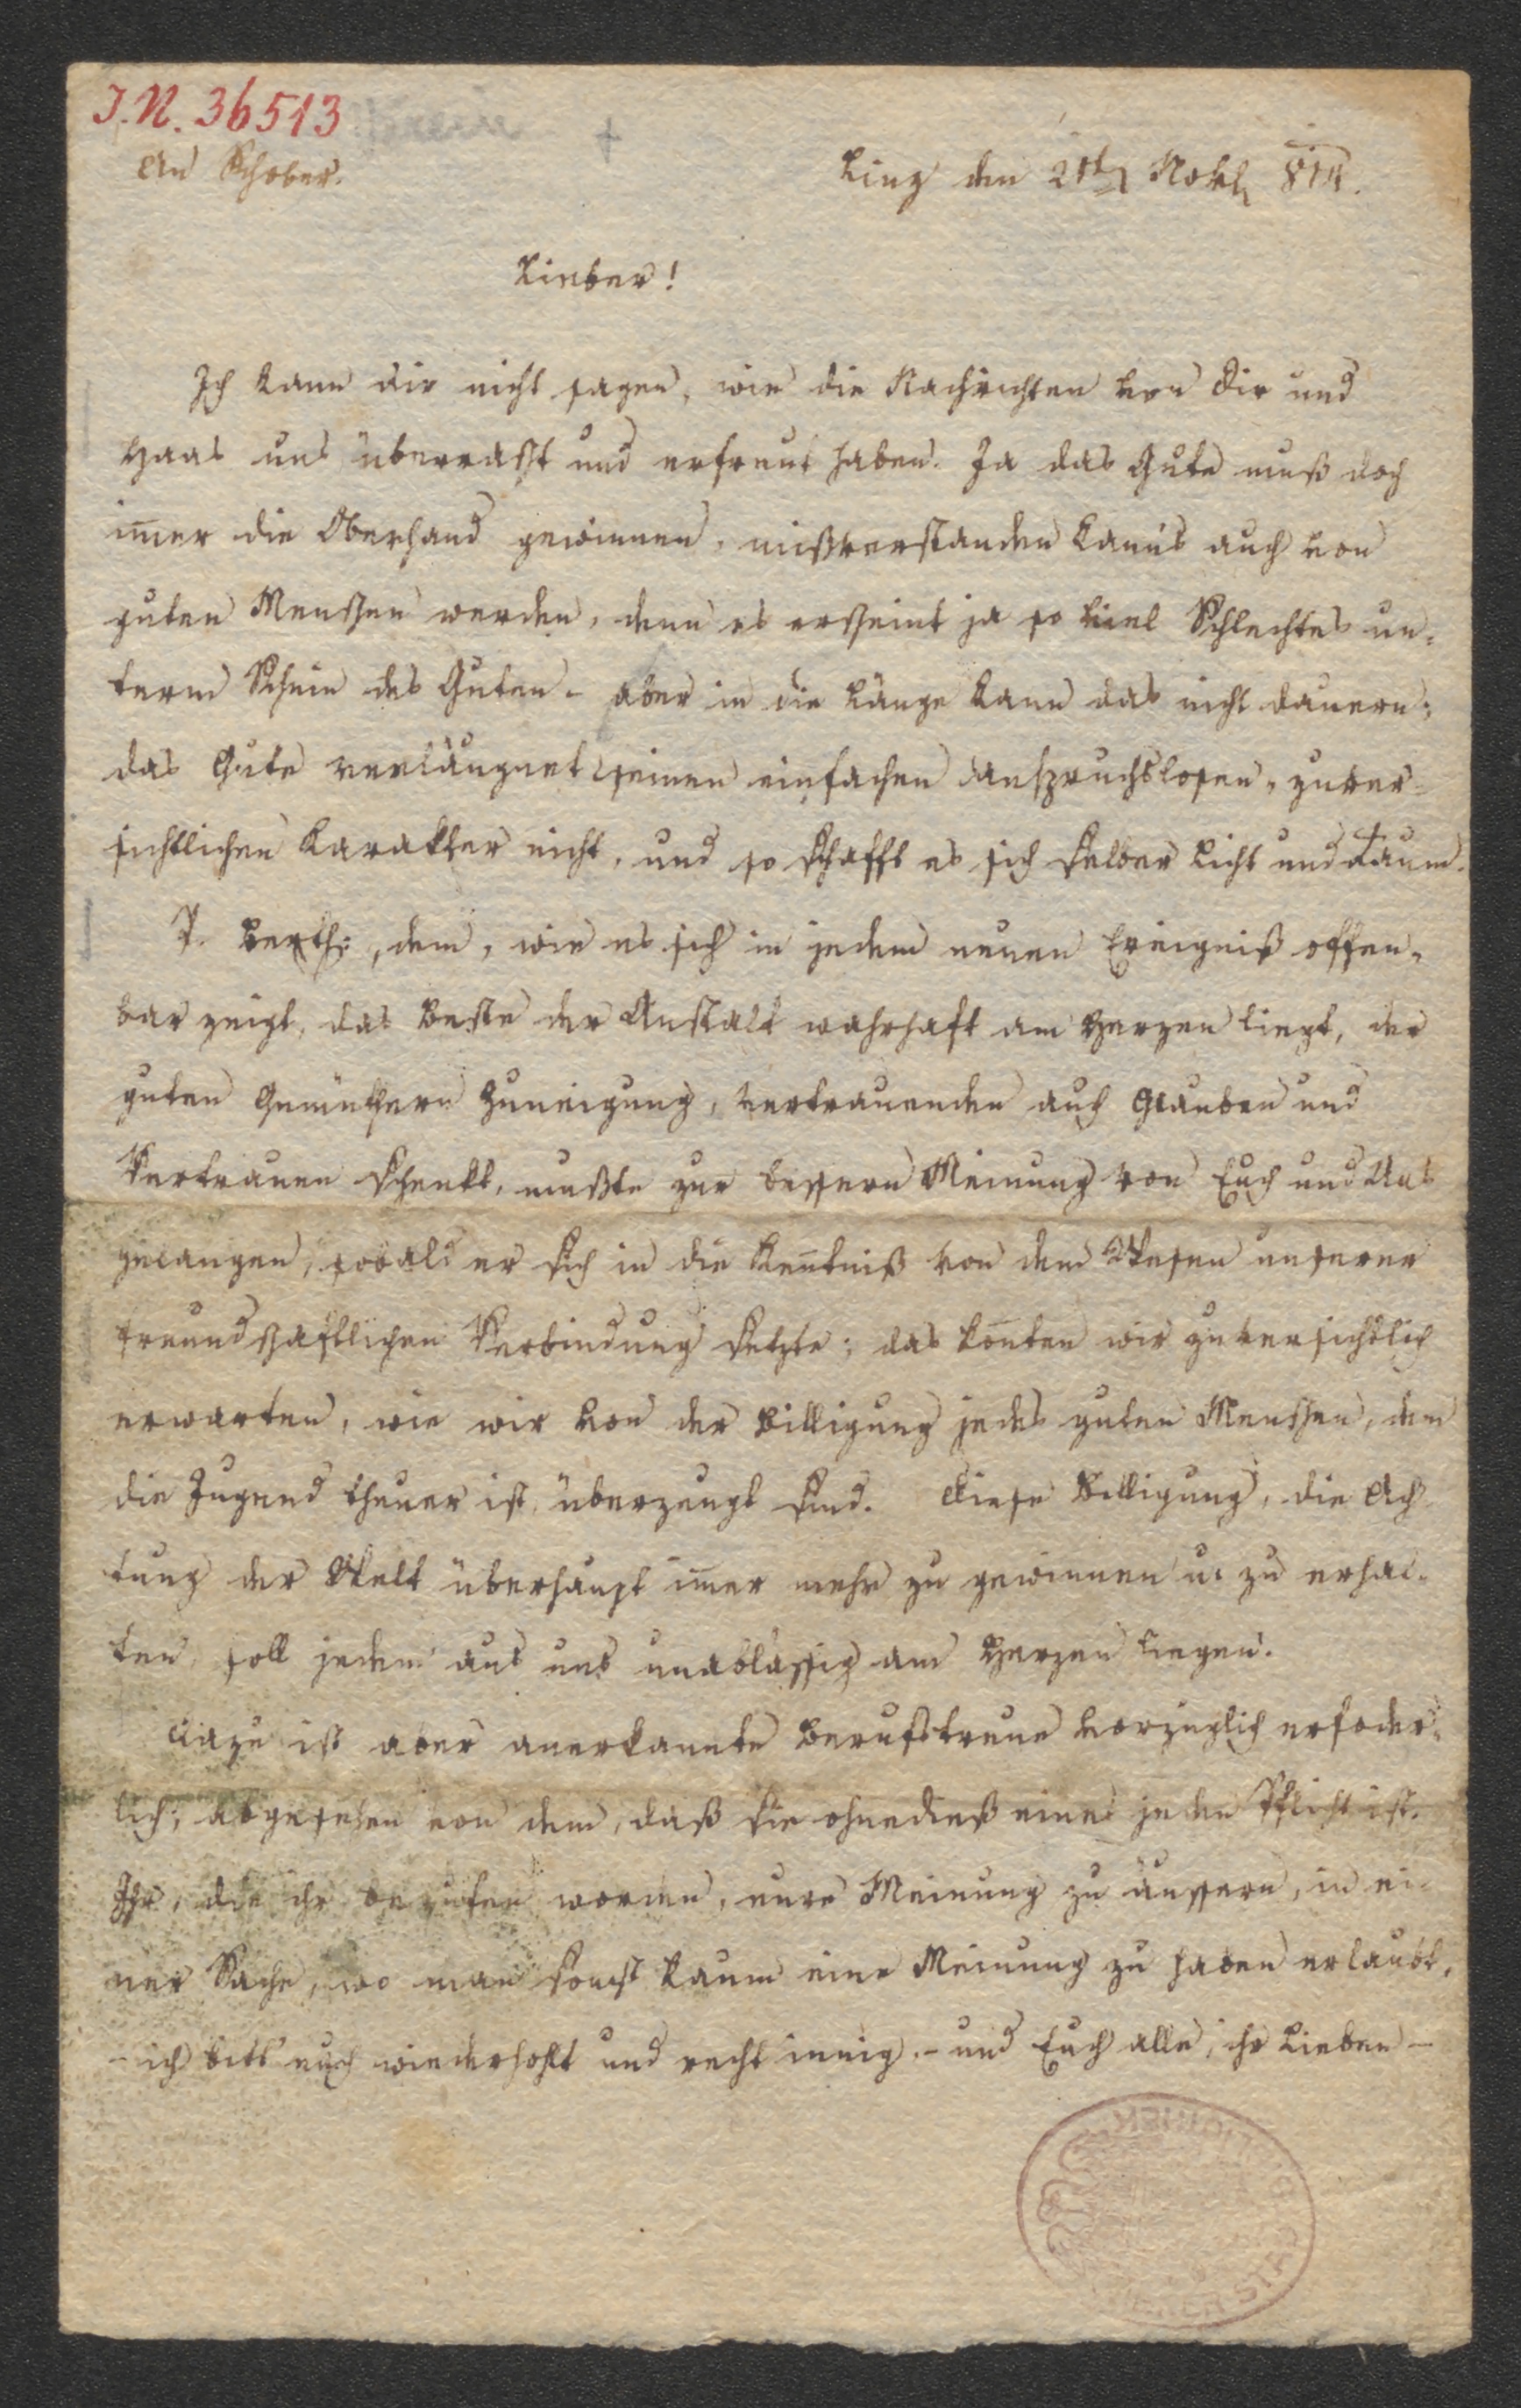 I.N. 36513
An Schober.
Linz den 21t Novb 814.
Lieber!
Ich kann dir nicht sagen, wie die Nachrichten von Dir und
Haas uns überrascht und erfreut haben. Ja das Gute muß doch
im̅er die Oberhand gewinnen, mißverstanden kann's auch von
guten Menschen werden, denn es erscheint ja so viel Schlechtes un-
term Schein des Guten - aber in die Länge kann das nicht dauern;
das Gute verläugnet seinen einfachen anspruchslosen, zuver-
sichtlichen Karakter nicht, und so schafft es sich selber Licht und Raum.
P. Berth:, dem, wie es sich in jedem neuen Ereigniß offen-
bar zeigt, das Beste der Anstalt wahrhaft am Herzen liegt, der
guten Gemüthern Zuneigung, vertrauenden auch Glauben und
Vertrauen schenkt, mußte zur bessern Meinung von Euch und Uns
gelangen, sobald er sich in die Ken̅tniß von dem Wesen unserer
freundschaftlichen Verbindung setzte; das kon̅ten wir zuversichtlich
erwarten, wie wir von der Billigung jedes guten Menschen, dem
die Jugend theuer ist, überzeugt sind. Diese Billigung, die Ach
tung der Welt überhaupt im̅er mehr zu gewinnen u. zu erhal-
ten, soll jedem aus uns unablässig am Herzen liegen.
Dazu ist aber anerkannte Berufstreue vorzüglich erfoder-
lich; abgesehen von dem, daß sie ohnedieß eines jeden Pflicht ist.
Ihr, die ihr berufen worden, eure Meinung zu äussern, in ei-
ner Sache, wo man sonst kaum eine Meinung zu haben erlaubt,
- ich bitt euch wiederhohlt und recht innig - und Euch alle, ihr Lieben -